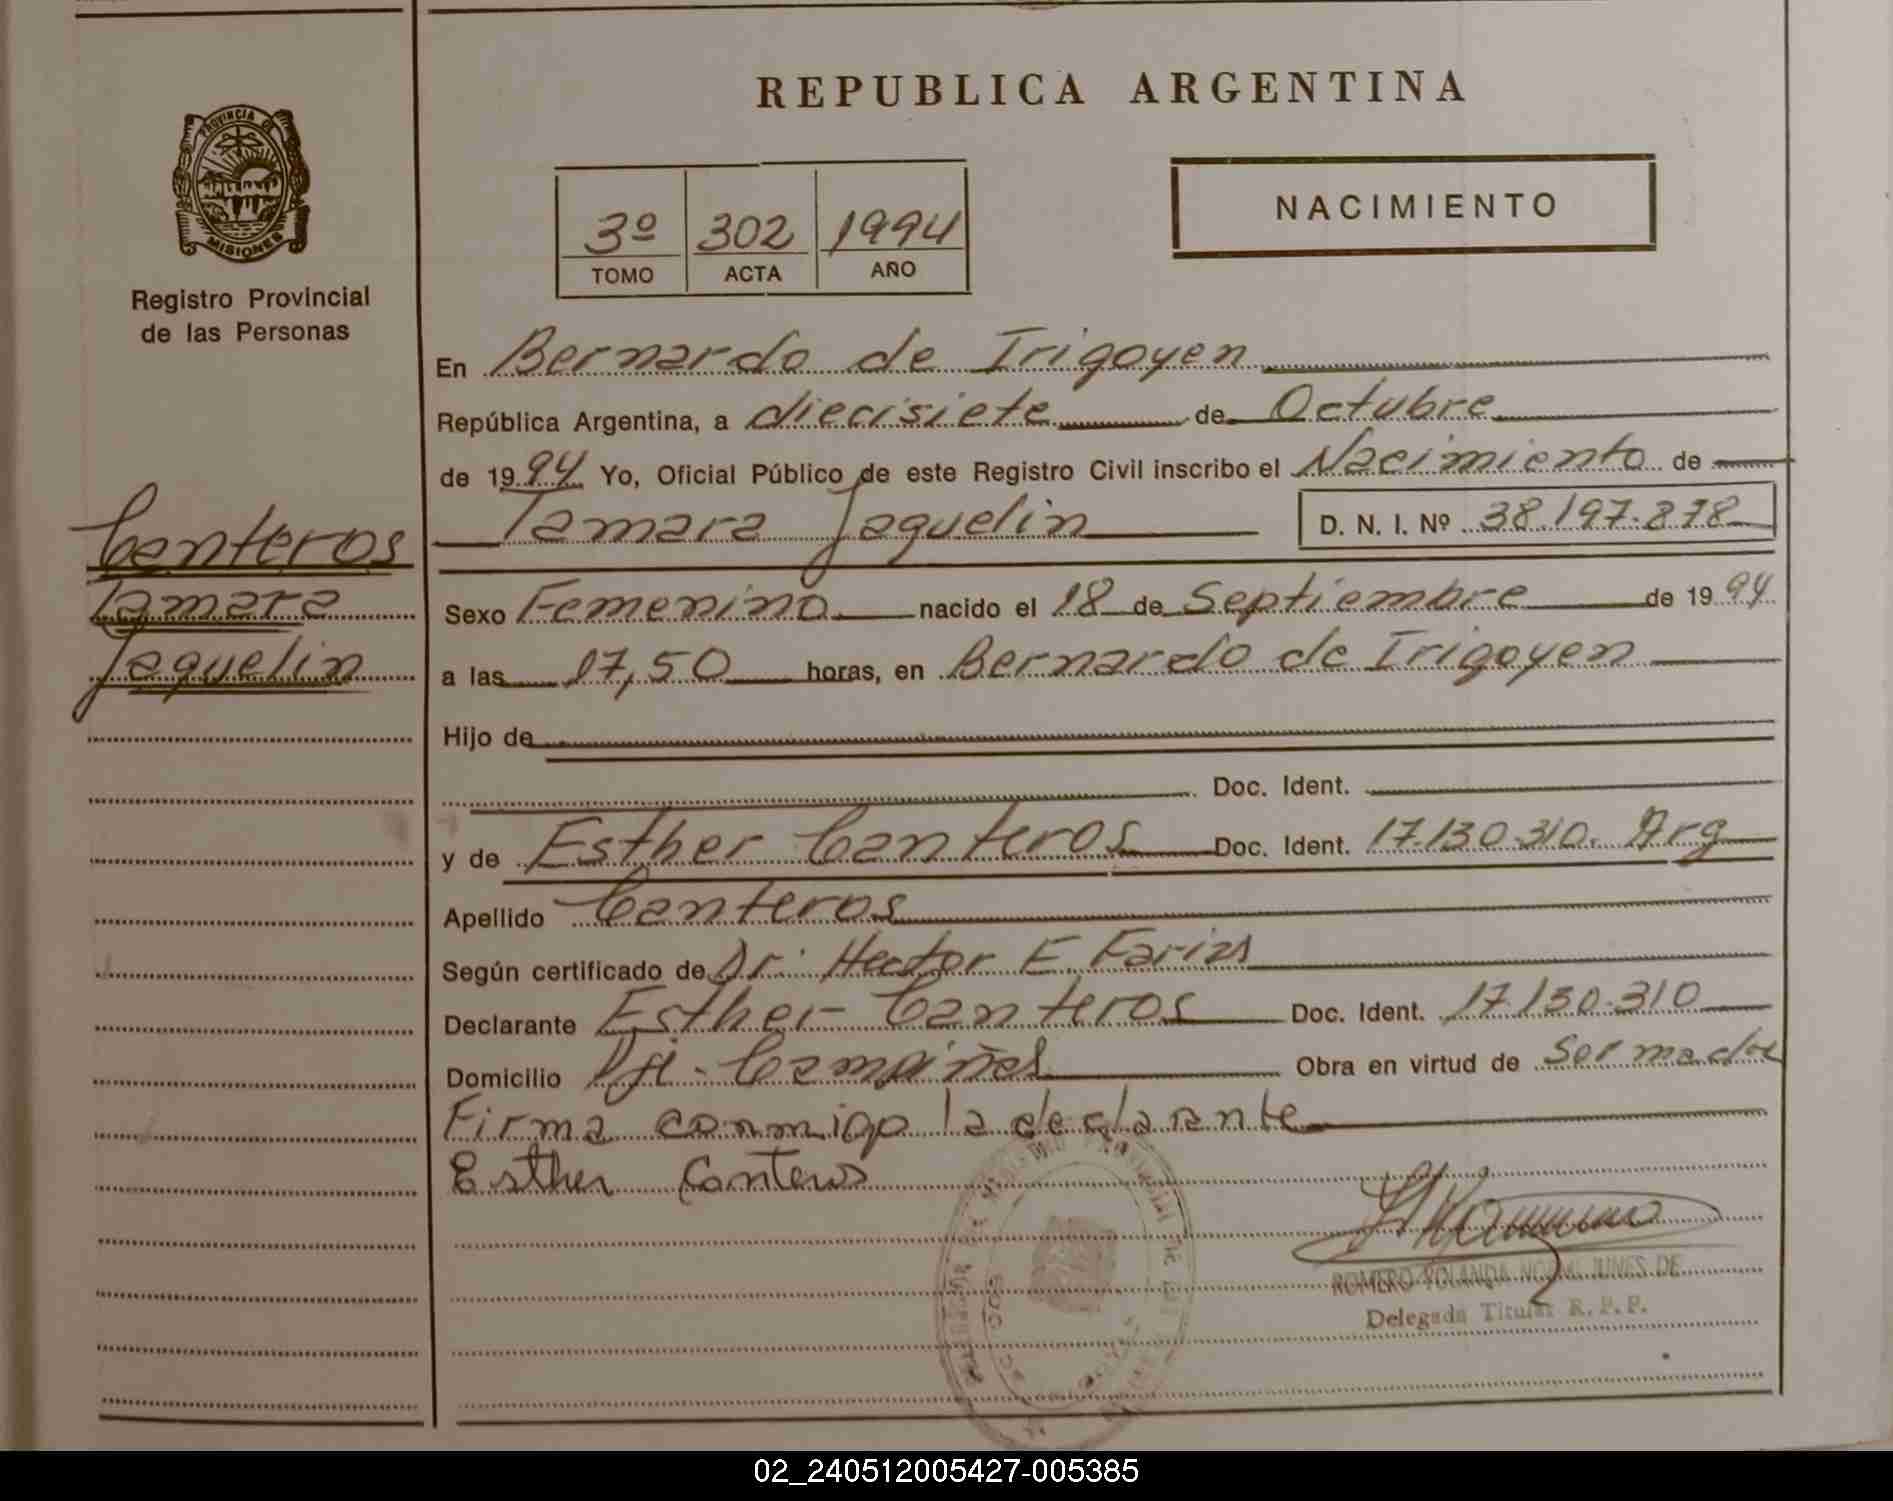 REPUBLICA ARGENTINA
PROVINCIA DE
MISIONES
Registro Provincial
de las Personas
3º 302 1994
TOMO ACTA AÑO
NACIMIENTO
Canteros
Tamara
Jaquelin
En Bernardo de Irigoyen
República Argentina, a diecisiete de Octubre
de 1994 Yo, Oficial Público de este Registro Civil inscribo el Nacimiento de
Tamara Jaquelin D. N. I. Nº 38.197.878
Sexo Femenino nacido el 18 de Septiembre de 1994
a las 17,50 horas, en Bernardo de Irigoyen
Hijo de
Doc. Ident.
y de Esther Canteros Doc. Ident. 17.130.310. Arg
Apellido Canteros
Según certificado de Dr. Hector E. Farias
Declarante Esther Canteros Doc. Ident. 17.130.310
Domicilio Obra en virtud de Ser madre
Firma conmigo la declarante
Esther Canteros
ROMERO YOLANDA NORMI JUNES DE
Delegada Titular R. P. P.
02_240512005427-005385